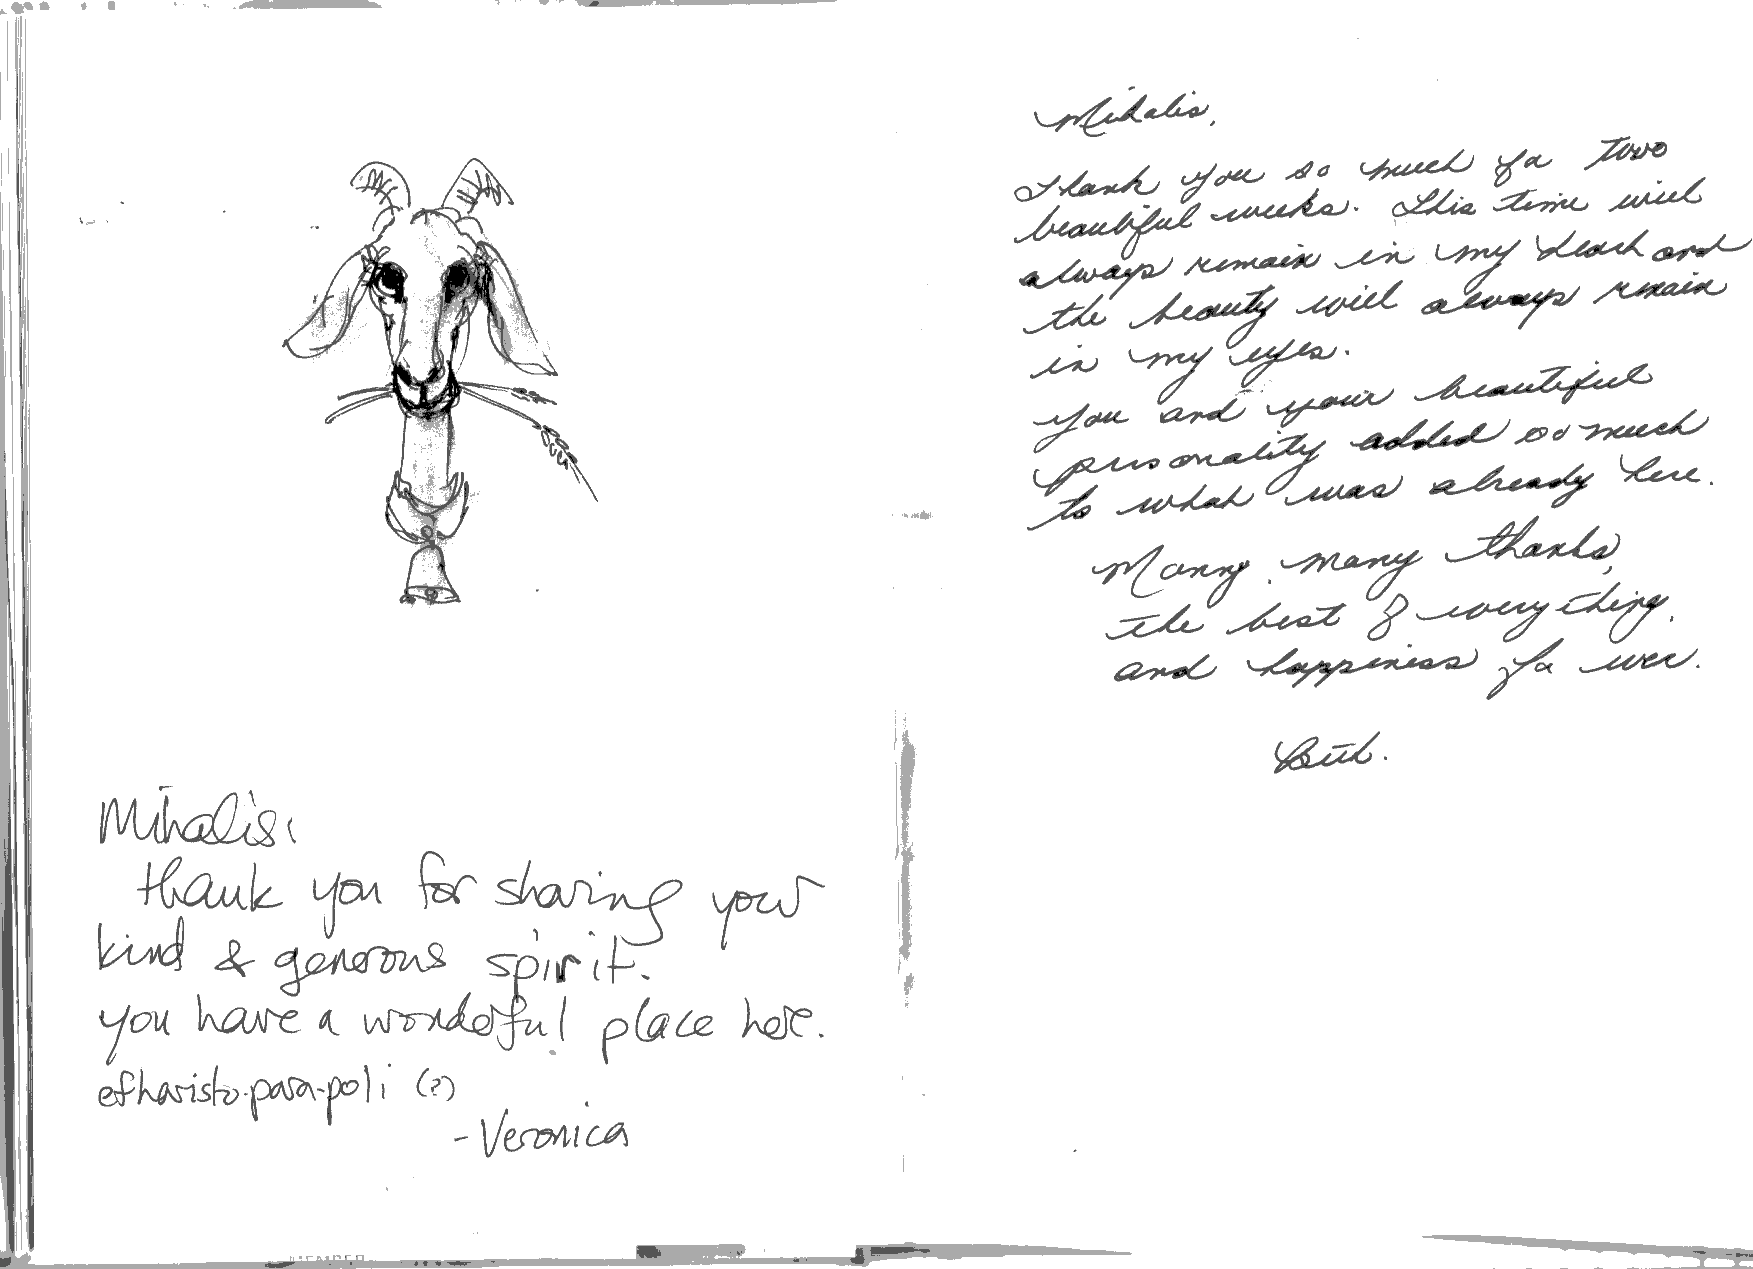 Mihalis:
thank you for sharing your
kind & generous spirit.
you have a wonderful place here.
efharisto-para-poli (?)
- Veronica
Mihalis,
Thank you so much for two
beautiful weeks. This time will
always remain in my heart and
the beauty will always remain
in my eyes.
You and your beautiful
personality added so much
to what was already here.
Many, many thanks,
the best of everything,
and happiness for ever.
Beth.